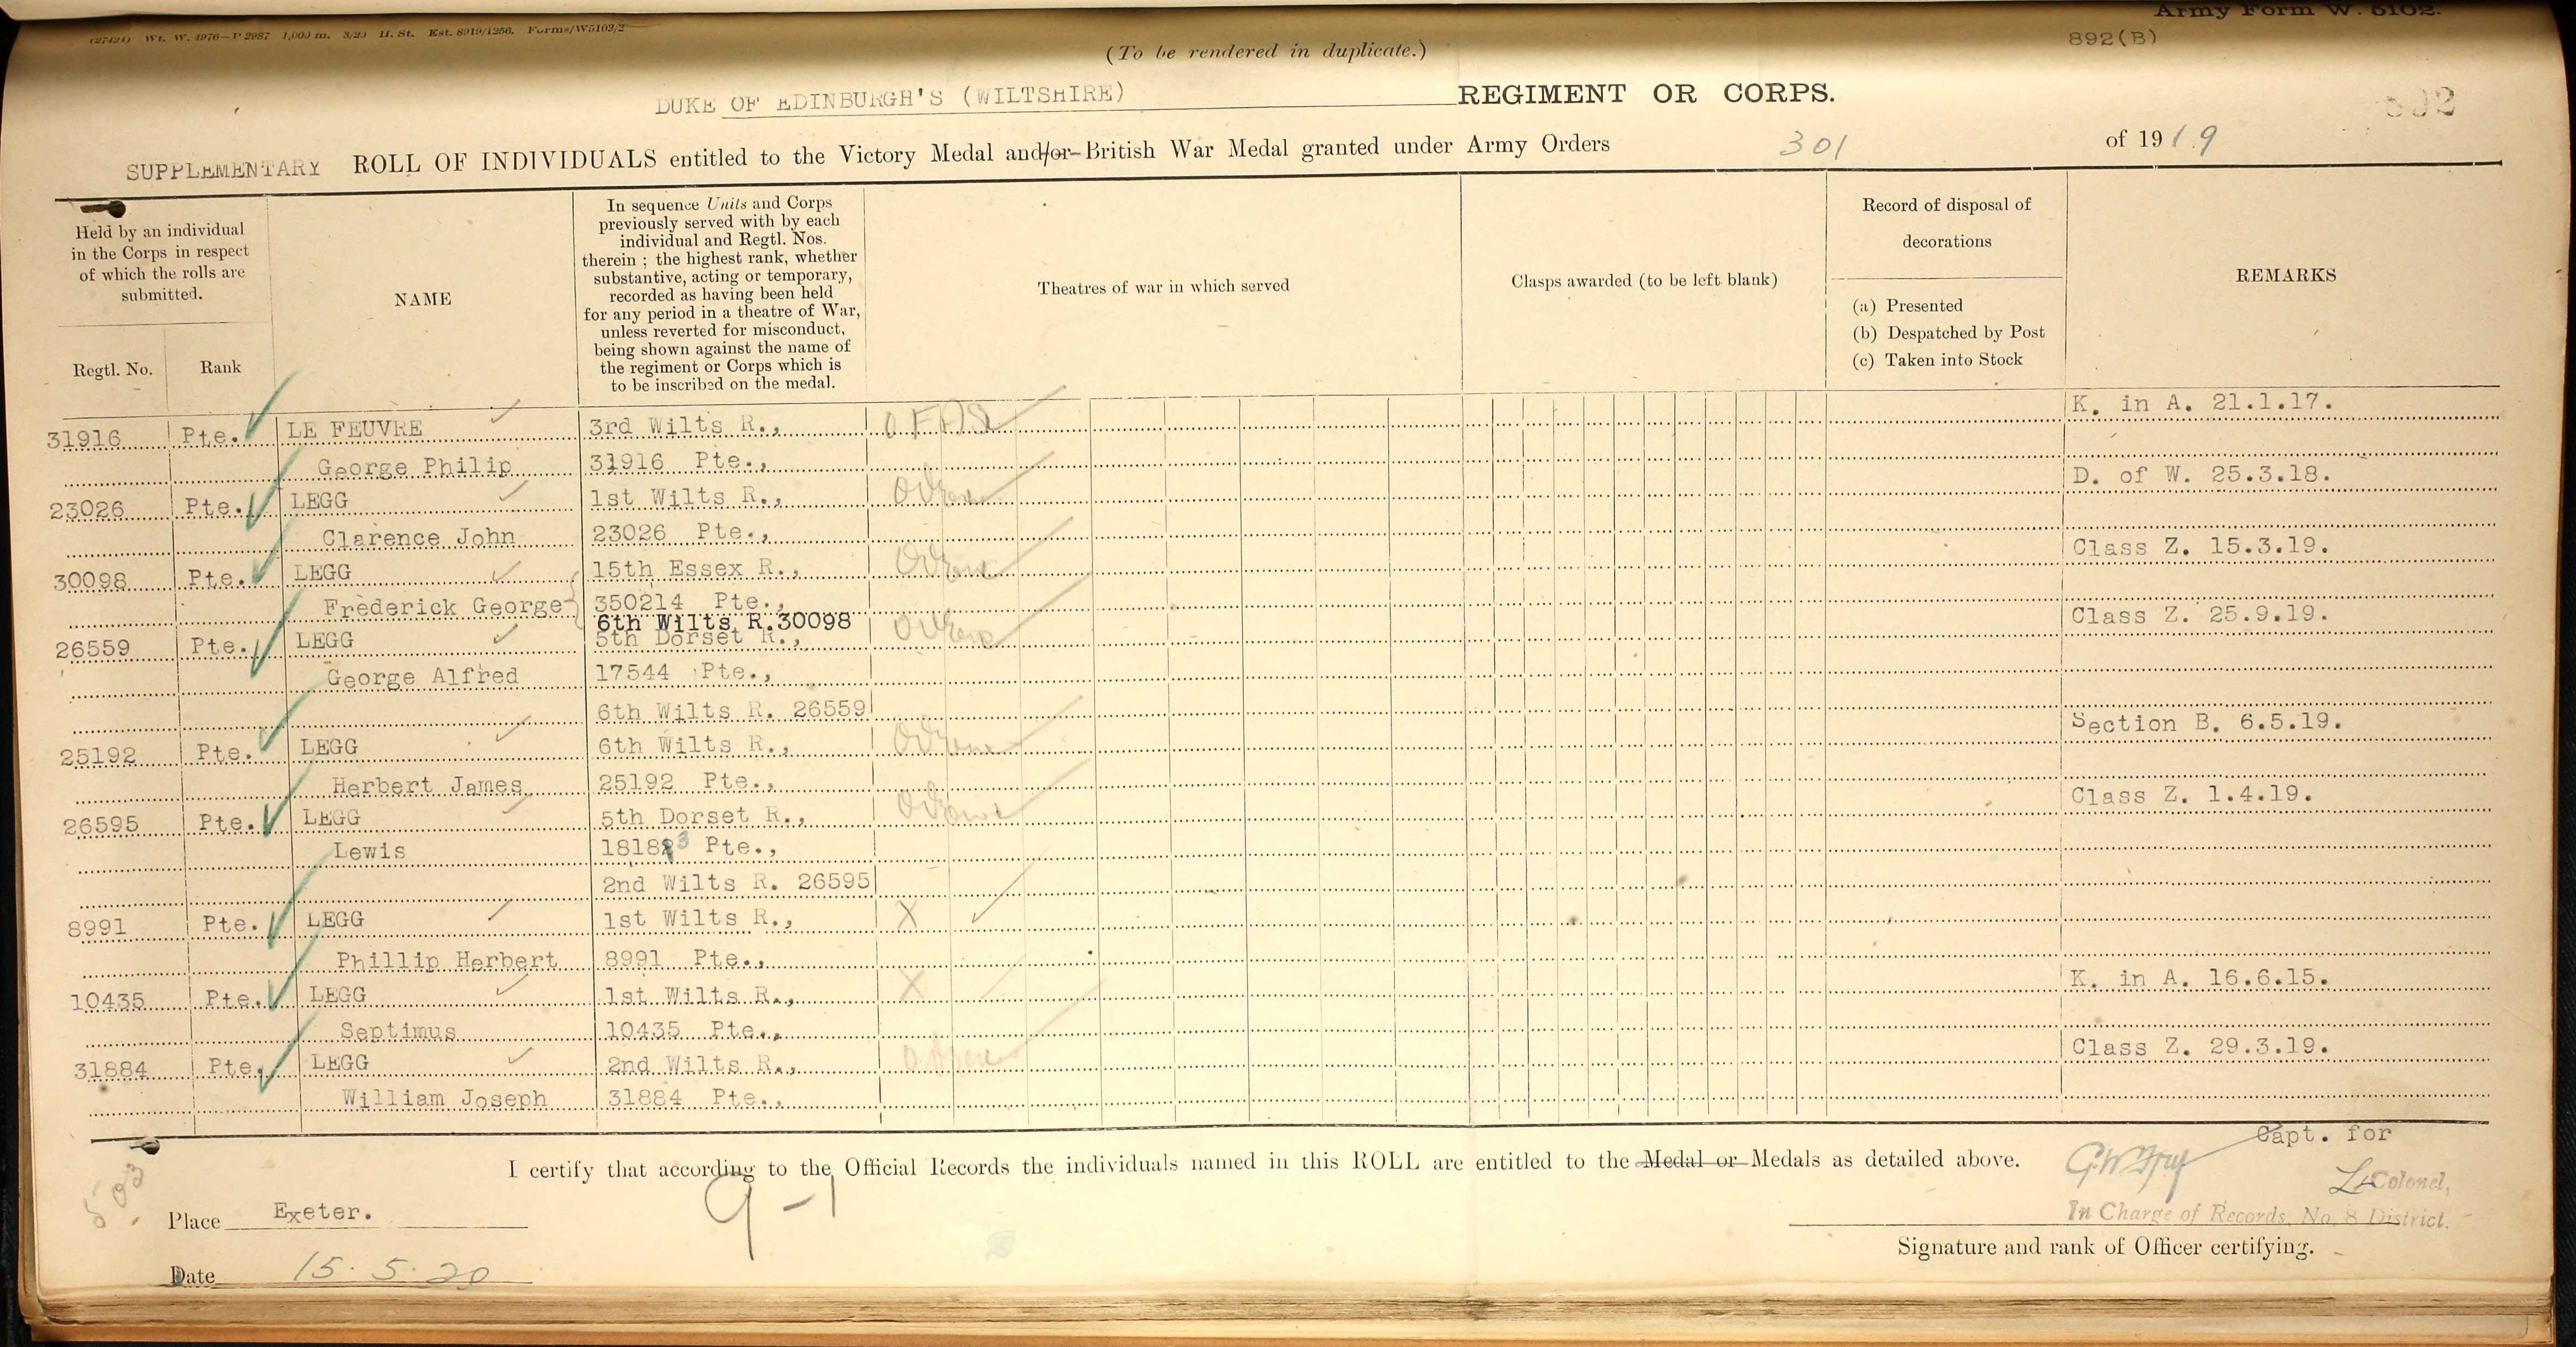 Army Form W. 5102.
(27424) Wt. W. 4976—P 2987 1,000 m. 3/20 H. St. Est. 8919/1256. Forms/W5102/2
892(B)
(To be rendered in duplicate.)
DUKE OF EDINBURGH'S (WILTSHIRE) REGIMENT OR CORPS.
892
SUPPLEMENTARY ROLL OF INDIVIDUALS entitled to the Victory Medal and/or British War Medal granted under Army Orders 301 of 1919
Held by an individual
in the Corps in respect
of which the rolls are
submitted.
Regtl. No. Rank
NAME
In sequence Units and Corps
previously served with by each
individual and Regtl. Nos.
therein ; the highest rank, whether
substantive, acting or temporary,
recorded as having been held
for any period in a theatre of War,
unless reverted for misconduct,
being shown against the name of
the regiment or Corps which is
to be inscribed on the medal.
Theatres of war in which served
Clasps awarded (to be left blank)
Record of disposal of
decorations
(a) Presented
(b) Despatched by Post
(c) Taken into Stock
REMARKS
31916 Pte. LE FEUVRE 3rd Wilts R., K. in A. 21.1.17.
George Philip 31916 Pte.,
23026 Pte. LEGG 1st Wilts R., D. of W. 25.3.18.
Clarence John 23026 Pte.,
30098 Pte. LEGG 15th Essex R., Class Z. 15.3.19.
Frederick George 350214 Pte.,
6th Wilts R.30098
26559 Pte. LEGG 5th Dorset R., Class Z. 25.9.19.
George Alfred 17544 Pte.,
6th Wilts R. 26559
25192 Pte. LEGG 6th Wilts R., Section B. 6.5.19.
Herbert James 25192 Pte.,
26595 Pte. LEGG 5th Dorset R., Class Z. 1.4.19.
Lewis 18183 Pte.,
2nd Wilts R. 26595
8991 Pte. LEGG 1st Wilts R., X
Phillip Herbert 8991 Pte.,
10435 Pte. LEGG 1st Wilts R., X K. in A. 16.6.15.
Septimus 10435 Pte.,
31884 Pte. LEGG 2nd Wilts R., Class Z. 29.3.19.
William Joseph 31884 Pte.,
I certify that according to the Official Records the individuals named in this ROLL are entitled to the Medal or Medals as detailed above.
Capt. for
Lt Colonel,
In Charge of Records, No. 8 District.
Signature and rank of Officer certifying.
503
9-1
Place Exeter.
Date 15.5.20